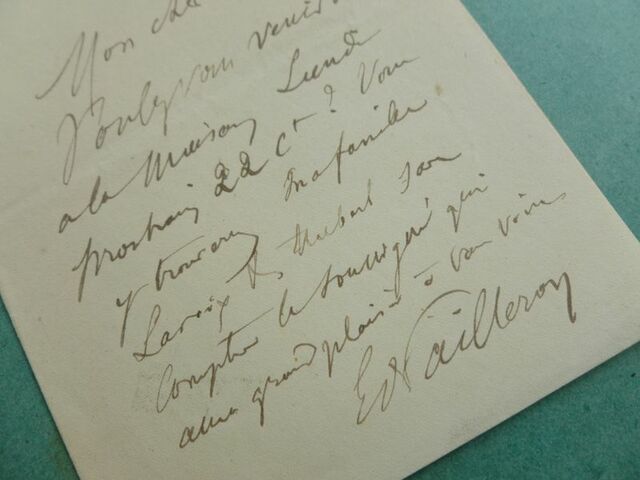 Mon che
Voulez vous venir
a la maison, Lundi
prochain 22 Ct ? Vous
y trouverez ma famille
Lavoix &, Hubert sans
compter le soussigné qui
aura grand plaisir à vous voir.
Ed Pailleron